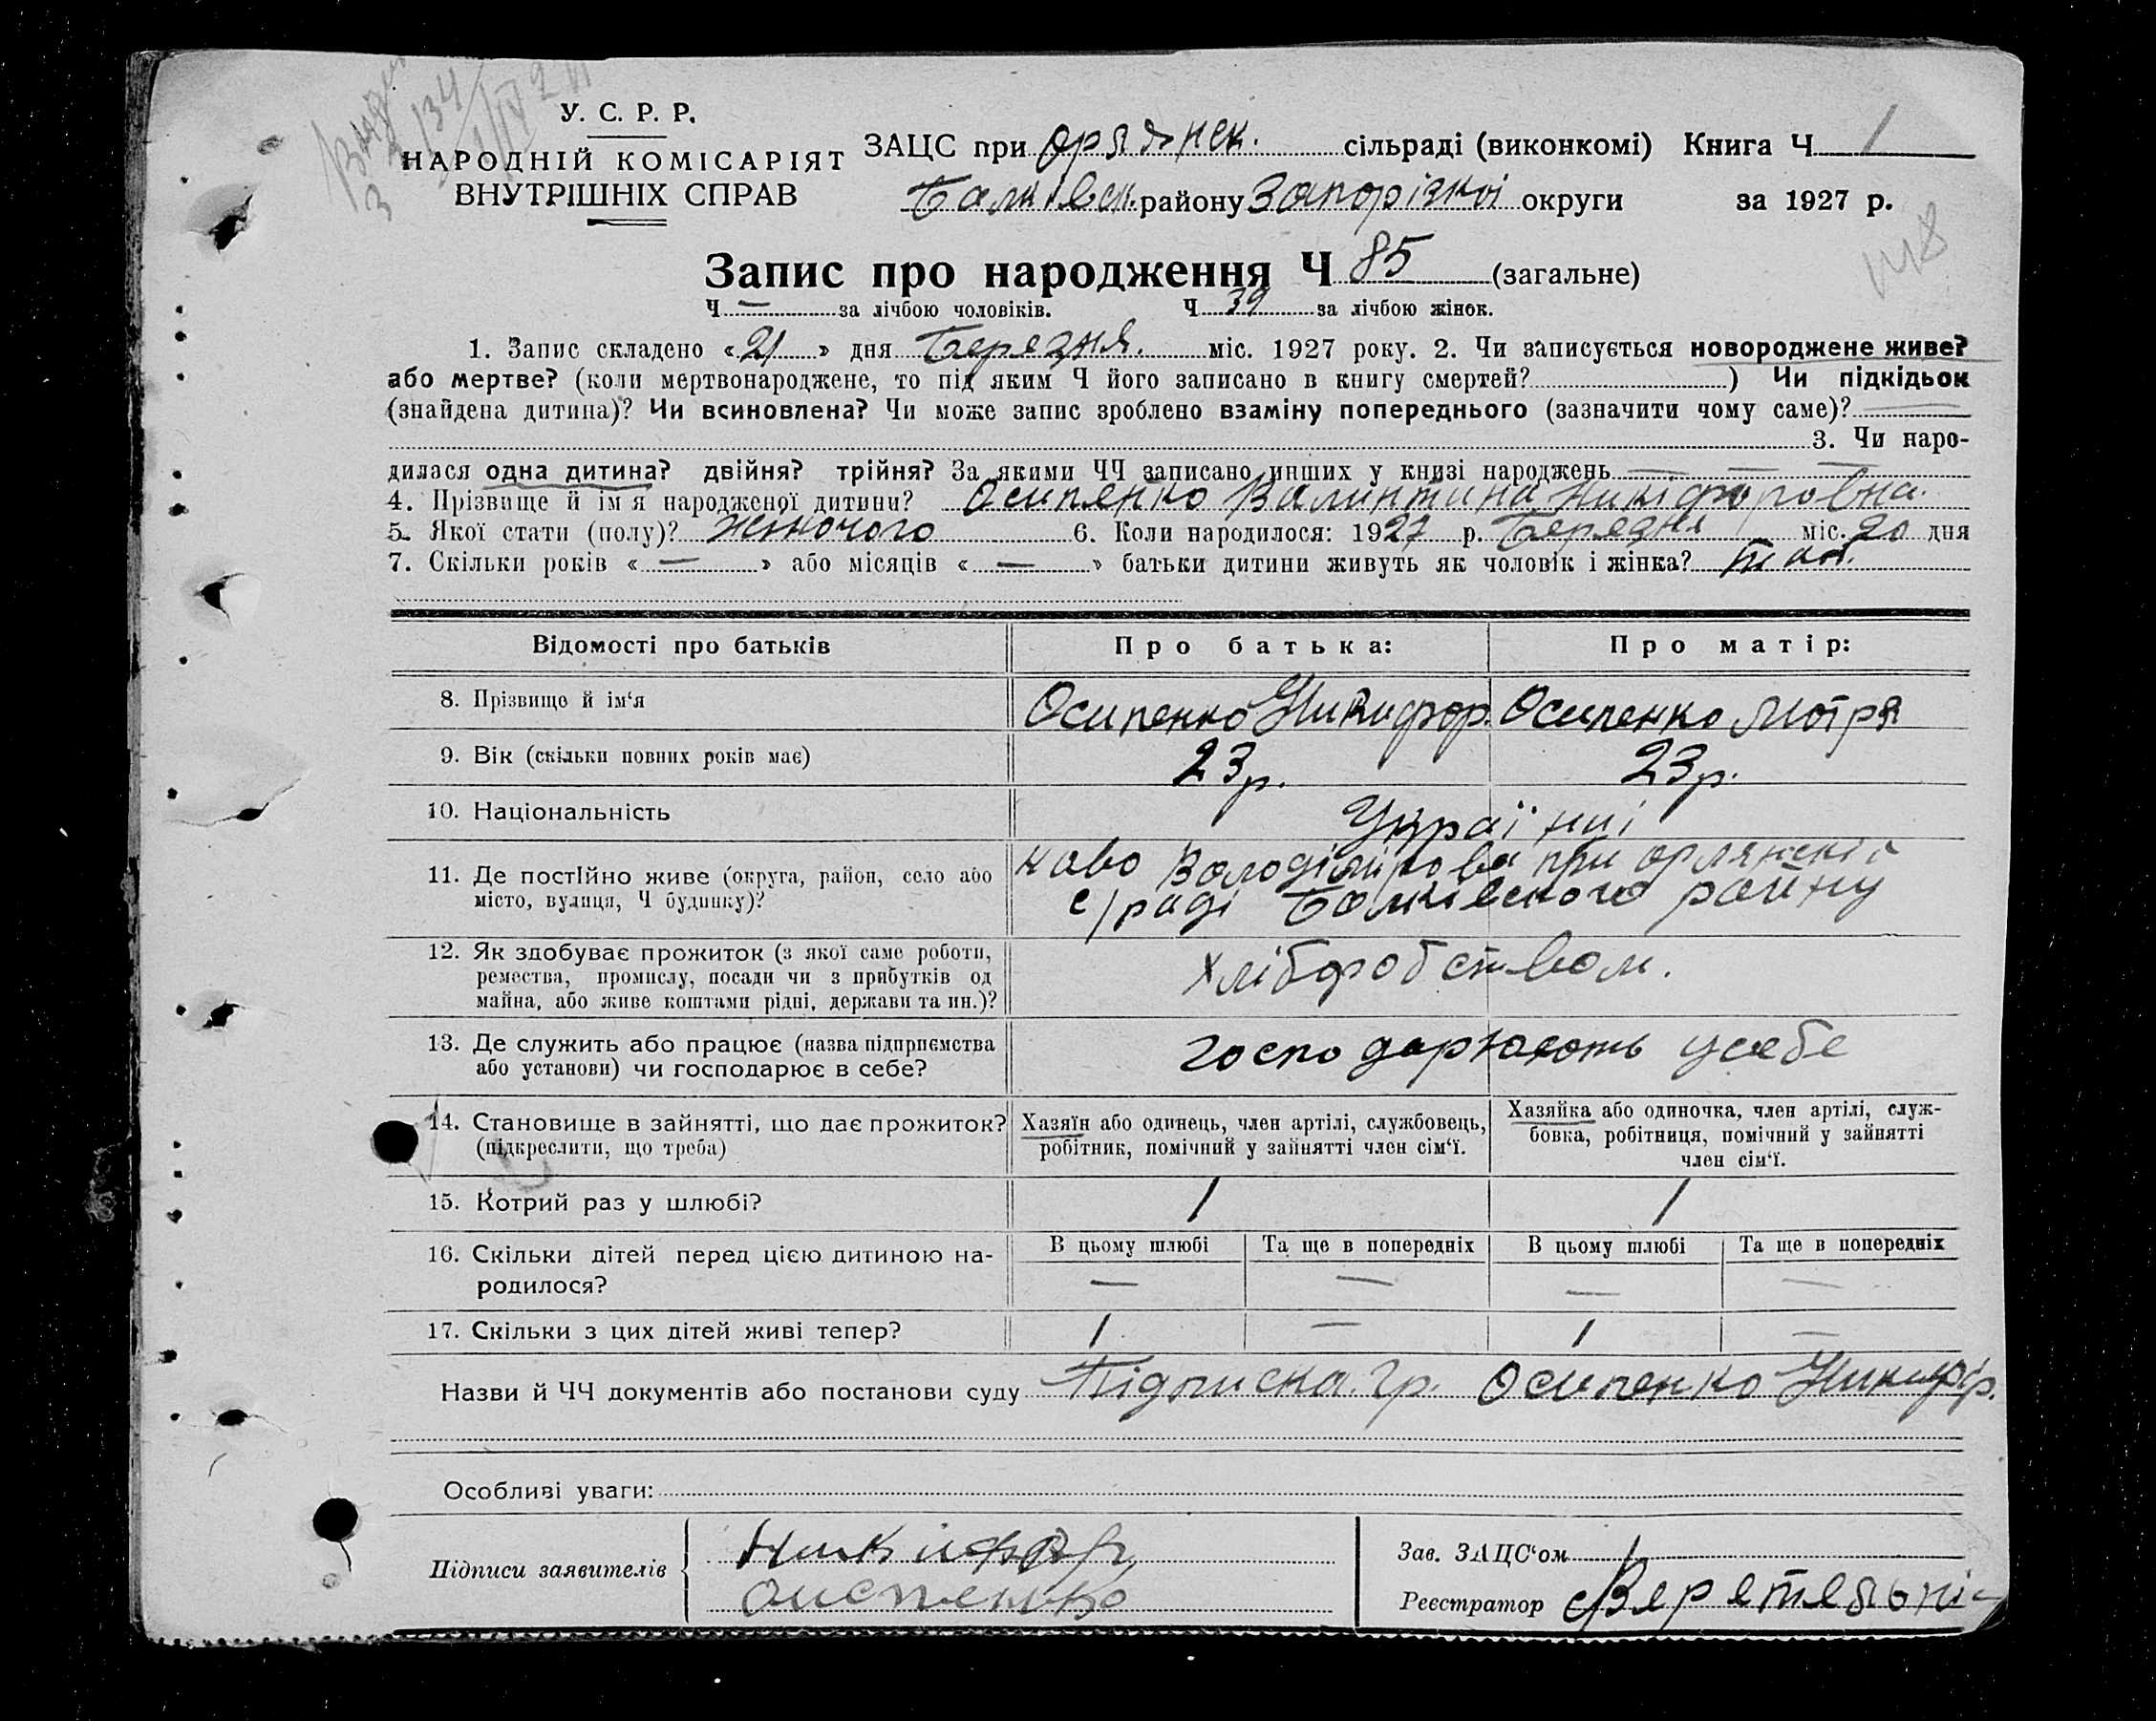 У. С. Р. Р.
НАРОДНІЙ КОМІСАРІЯТ
ВНУТРІШНІХ СПРАВ
ЗАЦС при Орлянск. сільраді (виконкомі) Книга Ч 1
Балківск. району Запорізкоі округи за 1927 р.
Запис про народження Ч 85 (загальне)
Ч — за лічбою чоловіків. Ч 39 за лічбою жінок.
1. Запис складено «21» дня Березня. міс. 1927 року. 2. Чи записується новороджене живе?
або мертве? (коли мертвонароджене, то під яким Ч його записано в книгу смертей? ) Чи підкідьок
(знайдена дитина)? Чи всиновлена? Чи може запис зроблено взаміну попереднього (зазначити чому саме)? —
3. Чи наро-
дилася одна дитина? двійня? трійня? За якими ЧЧ записано инших у книзі народжень — — —
4. Прізвище й ім я народженої дитини? Осипенко Валинтина Никіфоровна.
5. Якої стати (полу)? жіночого 6. Коли народилося: 1927 р. Березня міс. 20 дня
7. Скільки років « — » або місяців « — » батьки дитини живуть як чоловік і жінка? так.
Відомості про батьків Про батька: Про матір:
8. Прізвище й ім‘я Осипенко Никифор. Осипенко Мотря
9. Вік (скільки повних років має) 23 р. 23 р.
10. Національність Украінці
11. Де постійно живе (округа, район, село або
місто, вулиця, Ч будинку)?
ново Володіміровка при орлянскій
с/раді Балківского району
12. Як здобуває прожиток (з якої саме роботи,
ремества, промислу, посади чи з прибутків од
майна, або живе коштами рідні, держави та ин.)?
хліборобством.
13. Де служить або працює (назва підприємства
або установи) чи господарює в себе?
господарюють усебе
14. Становище в зайнятті, що дає прожиток?
(підкреслити, що треба)
Хазяїн або одинець, член артілі, службовець,
робітник, помічний у зайнятті член сім‘ї.
Хазяйка або одиночка, член артілі, служ-
бовка, робітниця, помічний у зайнятті
член сім‘ї.
15. Котрий раз у шлюбі? 1 1
16. Скільки дітей перед цією дитиною на-
родилося?
В цьому шлюбі Та ще в попередніх В цьому шлюбі Та ще в попередніх
— — — —
17. Скільки з цих дітей живі тепер? 1 — 1 —
Назви й ЧЧ документів або постанови суду Підписка гр. Осипенко Никифор.
Особливі уваги:
Підписи заявителів
Никифор
Осипенко
Зав. ЗАЦС‘ом
Реєстратор